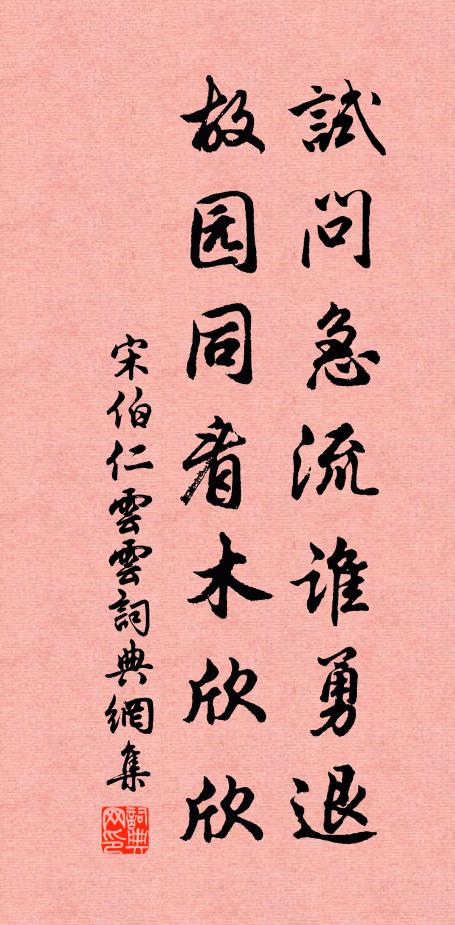 試問急流谁勇退
故园同看木欣欣
宋伯仁雲雲詞典網集
詞典网印